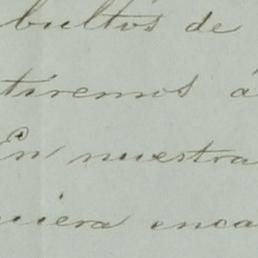 bultos de
tiremos á
En nuestra
uiera enca